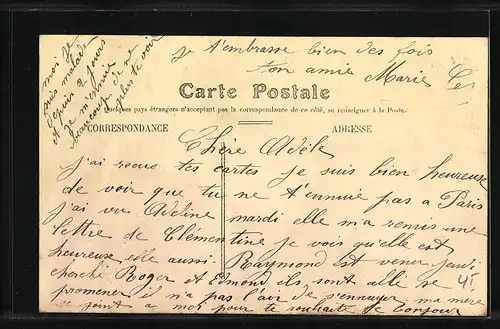 moi je
suis malade
depuis 2 jours
je m'ennuie
beaucoup de ne
plus te voir
je t'embrasse bien des fois
ton amie Marie
Carte Postale
Quelques pays étrangers n'acceptant pas la correspondance de ce côté, se renseigner à la Poste.
CORRESPONDANCE ADRESSE
Chère Adèle
j'ai recue tes cartes je suis bien heureuse
de voir que tu ne t'ennuie pas a Paris
j'ai vu Adeline mardi elle m'a remis une
lettre de Clémentine je vois qu'elle est
heureuse elle aussi Raymond est venu jeudi
cherché Roger et Edmond ils sont allé se
promener il n'a pas l'air de s'ennuyer ma mère
se joint a moi pour te souhaité le bonjour